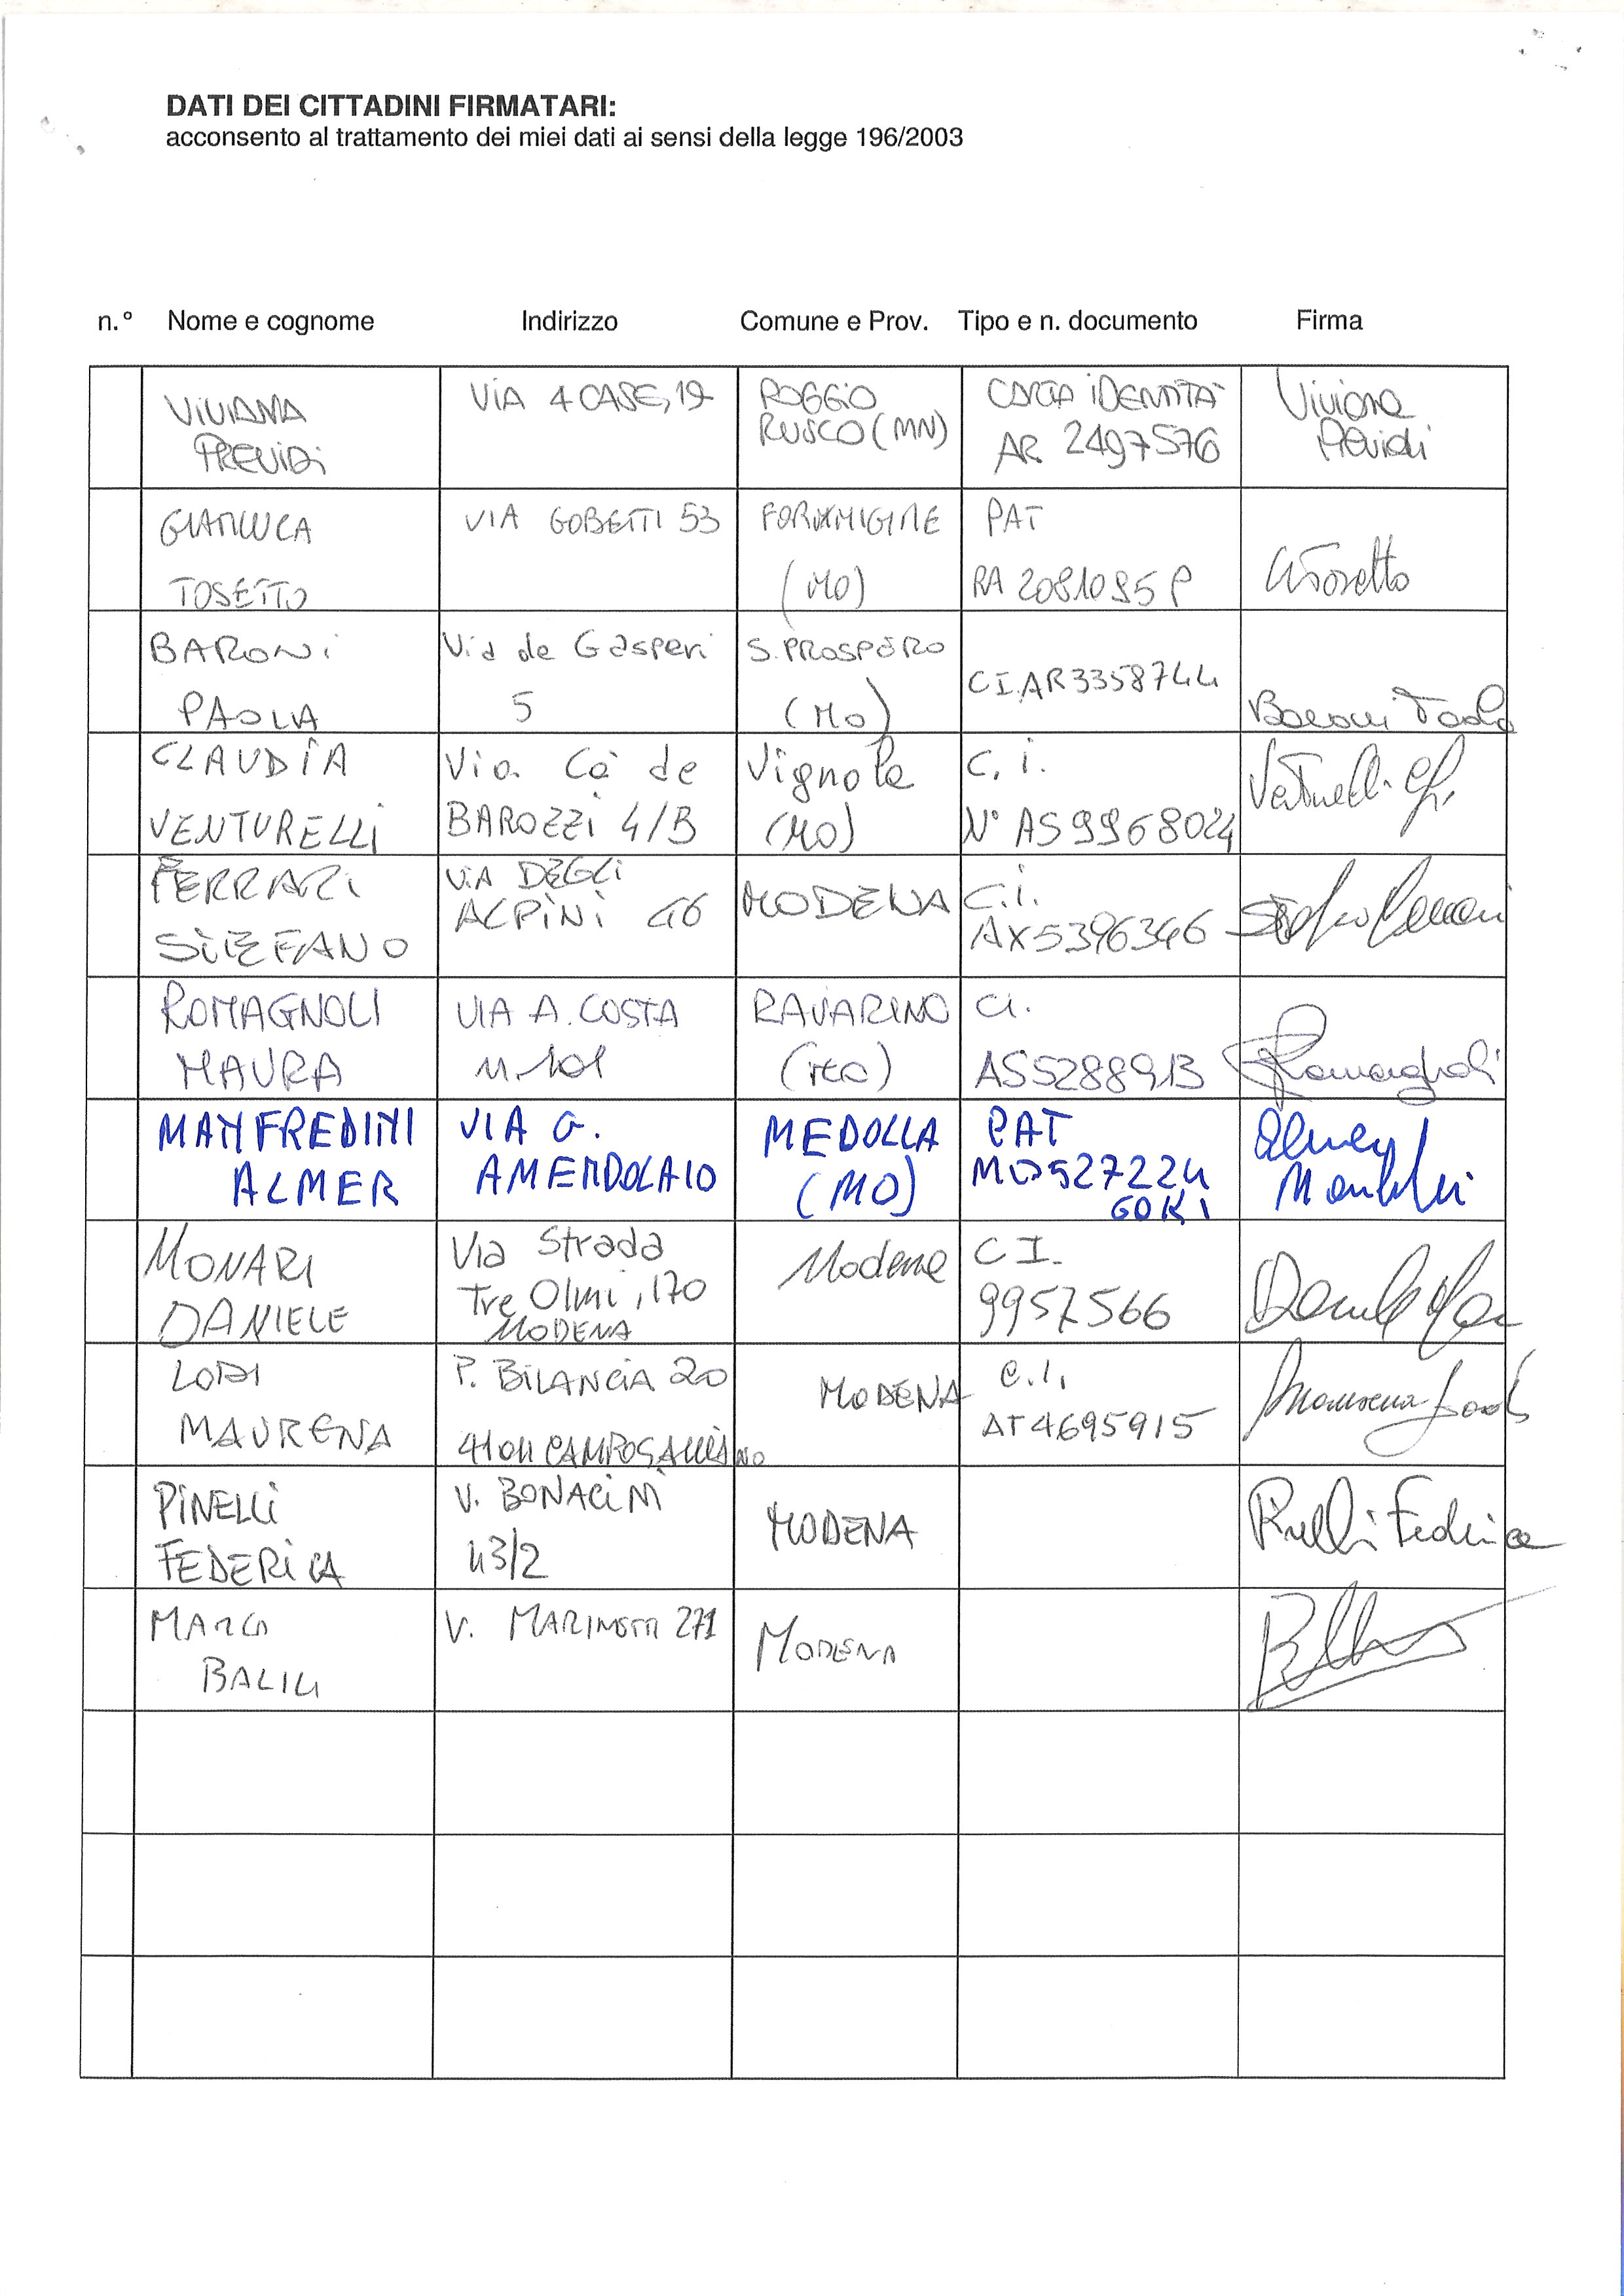 DATI DEI CITTADINI FIRMATARI:
acconsento al trattamento dei miei dati ai sensi della legge 196/2003
n.° Nome e cognome Indirizzo Comune e Prov. Tipo e n. documento Firma
VIVIANA PREVIDI VIA 4 CASE, 19 POGGIO RUSCO (MN) CARTA IDENTITA' AR 2497576 Viviana Previdi
GIANLUCA TOSETTO VIA GOBETTI 53 FORMIGINE (MO) PAT RA 2081095 P GTosetto
BARONI PAOLA Via de Gasperi 5 S. PROSPERO (MO) C.I. AR3358744 Baroni Paola
CLAUDIA VENTURELLI Via Cà de BAROZZI 4/B Vignola (MO) C. i. N° AS9968024 Venturelli
FERRARI STEFANO VIA DEGLI ALPINI 46 MODENA C.i. AX5396346 Stefano Ferrari
ROMAGNOLI MAURA VIA A. COSTA n. 101 RAVARINO (MO) CI. AS5288913 Romagnoli
MANFREDINI ALMER VIA G. AMENDOLA 10 MEDOLLA (MO) PAT MO527224 GOKI Almer
MONARI DANIELE Via Strada Tre Olmi, 170 MODENA Modena C I. 9957566 Daniele
LODI MAURENA P. BILANCIA 20 41011 CAMPOGALLIANO MODENA C.I. AT4695915 Maurena Lodi
PINELLI FEDERICA V. BONACINI 43/2 MODENA Pinelli Federica
MARCO V. 271 MODENA